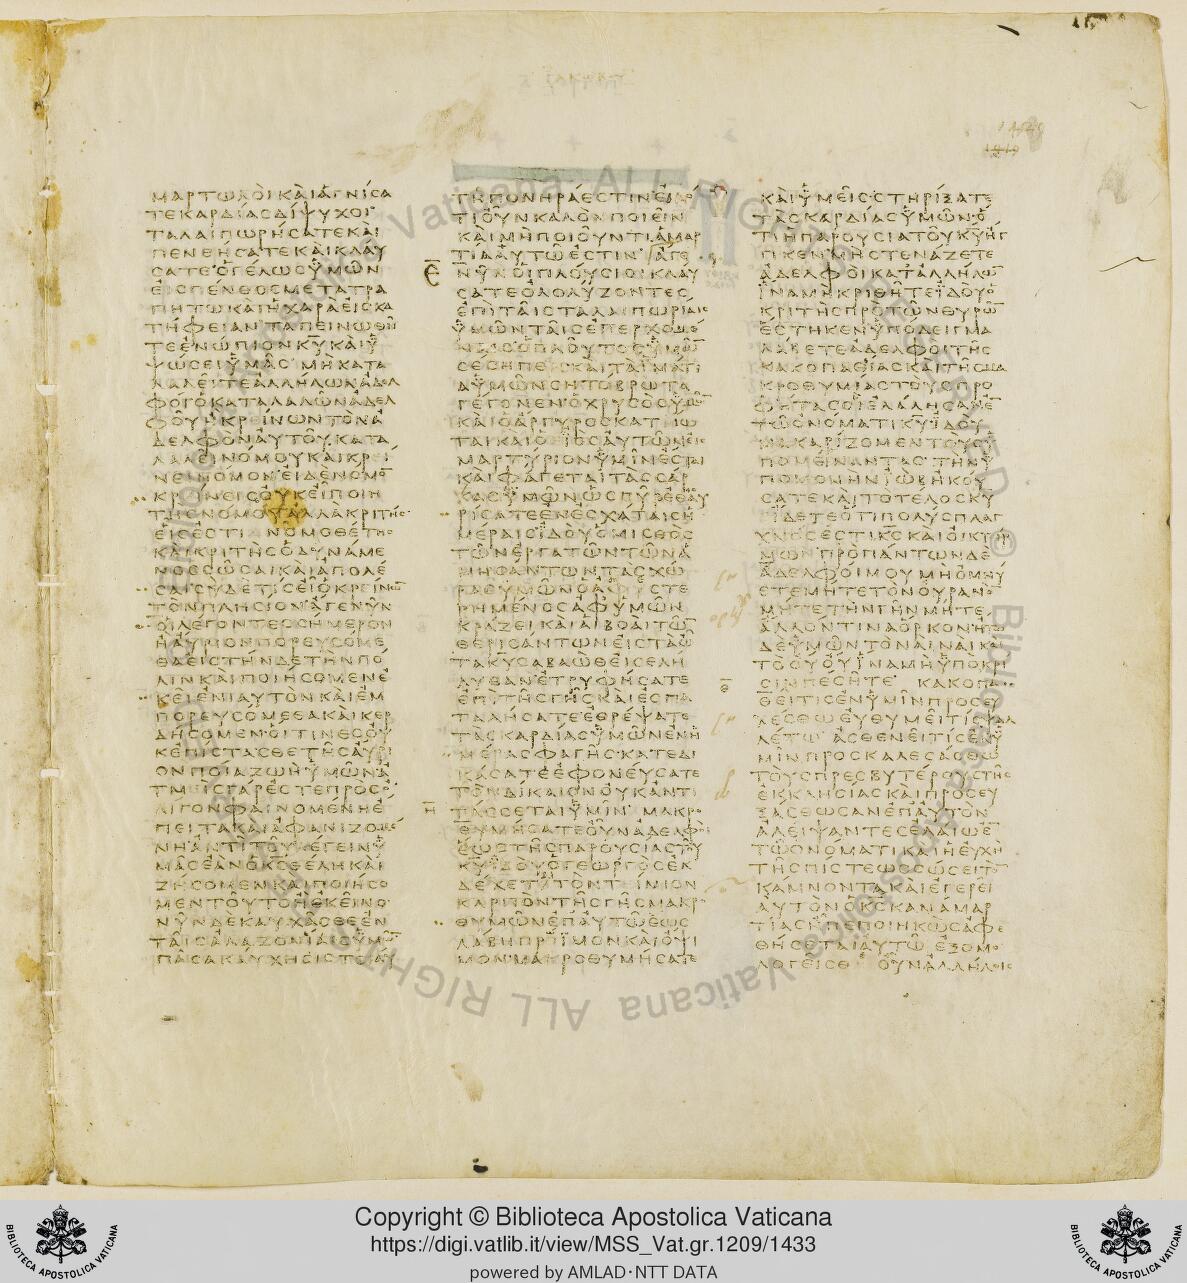 ΜΑΡΤΩΛΟΙ ΚΑΙ ΑΓΝΙΣΑ
ΤΕ ΚΑΡΔΙΑΣ ΔΙΨΥΧΟΙ
ΤΑΛΑΙΠΩΡΗΣΑΤΕ ΚΑΙ
ΠΕΝΘΗΣΑΤΕ ΚΑΙ ΚΛΑΥ
ΣΑΤΕ Ο ΓΕΛΩΣ ΥΜΩΝ
ΕΙΣ ΠΕΝΘΟΣ ΜΕΤΑΤΡΑ
ΠΗΤΩ ΚΑΙ Η ΧΑΡΑ ΕΙΣ ΚΑ
ΤΗΦΕΙΑΝ ΤΑΠΕΙΝΩΘΗ
ΤΕ ΕΝΩΠΙΟΝ ΚΥ ΚΑΙ Υ
ΨΩΣΕΙ ΥΜΑΣ ΜΗ ΚΑΤΑ
ΛΑΛΕΙΤΕ ΑΛΛΗΛΩΝ ΑΔΕΛ
ΦΟΙ Ο ΚΑΤΑΛΑΛΩΝ ΑΔΕΛ
ΦΟΥ Η ΚΡΕΙΝΩΝ ΤΟΝ Α
ΔΕΛΦΟΝ ΑΥΤΟΥ ΚΑΤΑ
ΛΑΛΕΙ ΝΟΜΟΥ ΚΑΙ ΚΡΕΙ
ΝΕΙ ΝΟΜΟΝ ΕΙ ΔΕ ΝΟΜΟ
ΚΡΙΝΕΙΣ ΟΥΚ ΕΙ ΠΟΙΗ
ΤΗΣ ΝΟΜΟΥ ΑΛΛΑ ΚΡΙΤΗΣ
ΕΙΣ ΕΣΤΙ ΝΟΜΟΘΕΤΗΣ
ΚΑΙ ΚΡΙΤΗΣ Ο ΔΥΝΑΜΕ
ΝΟΣ ΣΩΣΑΙ ΚΑΙ ΑΠΟΛΕ
ΣΑΙ ΣΥ ΔΕ ΤΙΣ ΕΙ Ο ΚΡΕΙΝΩ
ΤΟΝ ΠΛΗΣΙΟΝ ΑΓΕ ΝΥΝ
ΟΙ ΛΕΓΟΝΤΕΣ ΣΗΜΕΡΟΝ
Η ΑΥΡΙΟΝ ΠΟΡΕΥΣΟΜΕ
ΘΑ ΕΙΣ ΤΗΝΔΕ ΤΗΝ ΠΟ
ΛΙΝ ΚΑΙ ΠΟΙΗΣΟΜΕΝ Ε
ΚΕΙ ΕΝΙΑΥΤΟΝ ΚΑΙ ΕΜ
ΠΟΡΕΥΣΟΜΕΘΑ ΚΑΙ ΚΕΡ
ΔΗΣΟΜΕΝ ΟΙΤΙΝΕΣ ΟΥ
Κ ΕΠΙΣΤΑΣΘΕ ΤΗΣ ΑΥΡΙ
ΟΝ ΠΟΙΑ ΖΩΗ ΥΜΩΝ Α
ΤΜΙΣ ΓΑΡ ΕΣΤΕ ΠΡΟΣ Ο
ΛΙΓΟΝ ΦΑΙΝΟΜΕΝΗ Ε
ΠΕΙΤΑ ΚΑΙ ΑΦΑΝΙΖΟΜΕ
ΝΗ ΑΝΤΙ ΤΟΥ ΛΕΓΕΙΝ Υ
ΜΑΣ ΕΑΝ Ο ΚΣ ΘΕΛΗ ΚΑΙ
ΖΗΣΟΜΕΝ ΚΑΙ ΠΟΙΗΣΟ
ΜΕΝ ΤΟΥΤΟ Η ΕΚΕΙΝΟ
ΝΥΝ ΔΕ ΚΑΥΧΑΣΘΕ ΕΝ
ΤΑΙΣ ΑΛΑΖΟΝΙΑΙΣ ΥΜΩ
ΠΑΣΑ ΚΑΥΧΗΣΙΣ ΤΟΙΑΥ
ΤΗ ΠΟΝΗΡΑ ΕΣΤΙΝ ΕΙΔΟ
ΤΙ ΟΥΝ ΚΑΛΟΝ ΠΟΙΕΙΝ
ΚΑΙ ΜΗ ΠΟΙΟΥΝΤΙ ΑΜΑΡ
ΤΙΑ ΑΥΤΩ ΕΣΤΙΝ ΑΓΕ
Ε ΝΥΝ ΟΙ ΠΛΟΥΣΙΟΙ ΚΛΑΥ
ΣΑΤΕ ΟΛΟΛΥΖΟΝΤΕΣ
ΕΠΙ ΤΑΙΣ ΤΑΛΑΙΠΩΡΙΑΙΣ
ΥΜΩΝ ΤΑΙΣ ΕΠΕΡΧΟΜΕ
ΝΑΙΣ Ο ΠΛΟΥΤΟΣ ΥΜΩ
ΣΕΣΗΠΕΝ ΚΑΙ ΤΑ ΙΜΑΤΙ
Α ΥΜΩΝ ΣΗΤΟΒΡΩΤΑ
ΓΕΓΟΝΕΝ Ο ΧΡΥΣΟΣ ΥΜΩ
ΚΑΙ Ο ΑΡΓΥΡΟΣ ΚΑΤΙΩ
ΤΑΙ ΚΑΙ Ο ΙΟΣ ΑΥΤΩΝ ΕΙΣ
ΜΑΡΤΥΡΙΟΝ ΥΜΙΝ ΕΣΤΑΙ
ΚΑΙ ΦΑΓΕΤΑΙ ΤΑΣ ΣΑΡ
ΚΑΣ ΥΜΩΝ ΩΣ ΠΥΡ ΕΘΗΣΑΥ
ΡΙΣΑΤΕ ΕΝ ΕΣΧΑΤΑΙΣ Η
ΜΕΡΑΙΣ ΙΔΟΥ Ο ΜΙΣΘΟΣ
ΤΩΝ ΕΡΓΑΤΩΝ ΤΩΝ Α
ΜΗΣΑΝΤΩΝ ΤΑΣ ΧΩ
ΡΑΣ ΥΜΩΝ Ο ΑΦΥΣΤΕ
ΡΗΜΕΝΟΣ ΑΦ ΥΜΩΝ
ΚΡΑΖΕΙ ΚΑΙ ΑΙ ΒΟΑΙ ΤΩ
ΘΕΡΙΣΑΝΤΩΝ ΕΙΣ ΤΑ Ω
ΤΑ ΚΥ ΣΑΒΑΩΘ ΕΙΣΕΛΗ
ΛΥΘΑΝ ΕΤΡΥΦΗΣΑΤΕ
ΕΠΙ ΤΗΣ ΓΗΣ ΚΑΙ ΕΣΠΑ
ΤΑΛΗΣΑΤΕ ΕΘΡΕΨΑΤΕ
ΤΑΣ ΚΑΡΔΙΑΣ ΥΜΩΝ ΕΝ Η
ΜΕΡΑ ΣΦΑΓΗΣ ΚΑΤΕΔΙ
ΚΑΣΑΤΕ ΕΦΟΝΕΥΣΑΤΕ
ΤΟΝ ΔΙΚΑΙΟΝ ΟΥΚ ΑΝΤΙ
Η ΤΑΣΣΕΤΑΙ ΥΜΙΝ ΜΑΚΡΟ
ΘΥΜΗΣΑΤΕ ΟΥΝ ΑΔΕΛΦΟΙ
ΕΩΣ ΤΗΣ ΠΑΡΟΥΣΙΑΣ ΤΟΥ
ΚΥ ΙΔΟΥ Ο ΓΕΩΡΓΟΣ ΕΚ
ΔΕΧΕΤΑΙ ΤΟΝ ΤΙΜΙΟΝ
ΚΑΡΠΟΝ ΤΗΣ ΓΗΣ ΜΑΚΡΟ
ΘΥΜΩΝ ΕΠ ΑΥΤΩ ΕΩΣ
ΛΑΒΗ ΠΡΟΙΜΟΝ ΚΑΙ ΟΨΙ
ΜΟΝ ΜΑΚΡΟΘΥΜΗΣΑΤΕ
ΚΑΙ ΥΜΕΙΣ ΣΤΗΡΙΞΑΤΕ
ΤΑΣ ΚΑΡΔΙΑΣ ΥΜΩΝ Ο
ΤΙ Η ΠΑΡΟΥΣΙΑ ΤΟΥ ΚΥ ΗΓ
ΓΙΚΕΝ ΜΗ ΣΤΕΝΑΖΕΤΕ
ΑΔΕΛΦΟΙ ΚΑΤ ΑΛΛΗΛΩ
ΙΝΑ ΜΗ ΚΡΙΘΗΤΕ ΙΔΟΥ Ο
ΚΡΙΤΗΣ ΠΡΟ ΤΩΝ ΘΥΡΩ
ΕΣΤΗΚΕΝ ΥΠΟΔΕΙΓΜΑ
ΛΑΒΕΤΕ ΑΔΕΛΦΟΙ ΤΗΣ
ΚΑΚΟΠΑΘΙΑΣ ΚΑΙ ΤΗΣ ΜΑ
ΚΡΟΘΥΜΙΑΣ ΤΟΥΣ ΠΡΟ
ΦΗΤΑΣ ΟΙ ΕΛΑΛΗΣΑΝ Ε
Τ ΩΟΝΟΜΑΤΙ ΚΥ ΙΔΟΥ
ΜΑΚΑΡΙΖΟΜΕΝ ΤΟΥΣ Υ
ΠΟΜΕΙΝΑΝΤΑΣ ΤΗΝ Υ
ΠΟΜΟΝΗΝ ΙΩΒ ΗΚΟΥ
ΣΑΤΕ ΚΑΙ ΤΟ ΤΕΛΟΣ ΚΥ
ΕΙΔΕΤΕ ΟΤΙ ΠΟΛΥΣΠΛΑΓ
ΧΝΟΣ ΕΣΤΙ ΚΣ ΚΑΙ ΟΙΚΤΙΡ
ΜΩΝ ΠΡΟ ΠΑΝΤΩΝ ΔΕ
ΑΔΕΛΦΟΙ ΜΟΥ ΜΗ ΟΜΝΥ
ΕΤΕ ΜΗΤΕ ΤΟΝ ΟΥΡΑΝΟ
ΜΗΤΕ ΤΗΝ ΓΗΝ ΜΗΤΕ
ΑΛΛΟΝ ΤΙΝΑ ΟΡΚΟΝ ΗΤΩ
ΔΕ ΥΜΩΝ ΤΟ ΝΑΙ ΝΑΙ ΚΑΙ
ΤΟ ΟΥ ΟΥ ΙΝΑ ΜΗ ΥΠΟ ΚΡΙ
Θ ΣΙΝ ΠΕΣΗΤΕ ΚΑΚΟΠΑ
ΘΕΙ ΤΙΣ ΕΝ ΥΜΙΝ ΠΡΟΣΕΥ
ΧΕΣΘΩ ΕΥΘΥΜΕΙ ΤΙΣ ΨΑΛ
ΛΕΤΩ ΑΣΘΕΝΕΙ ΤΙΣ ΕΝ Υ
ΜΙΝ ΠΡΟΣΚΑΛΕΣΑΣΘΩ
ΤΟΥΣ ΠΡΕΣΒΥΤΕΡΟΥΣ ΤΗΣ
ΕΚΚΛΗΣΙΑΣ ΚΑΙ ΠΡΟΣΕΥ
ΞΑΣΘΩΣΑΝ ΕΠ ΑΥΤΟΝ
ΑΛΕΙΨΑΝΤΕΣ ΕΛΑΙΩ Ε
ΤΩ ΟΝΟΜΑΤΙ ΚΑΙ Η ΕΥΧΗ
ΤΗΣ ΠΙΣΤΕΩΣ ΣΩΣΕΙ ΤΟ
ΚΑΜΝΟΝΤΑ ΚΑΙ ΕΓΕΡΕΙ
ΑΥΤΟΝ Ο ΚΣ ΚΑΝ ΑΜΑΡ
ΤΙΑΣ Η ΠΕΠΟΙΗΚΩΣ ΑΦΕ
ΘΗΣΕΤΑΙ ΑΥΤΩ ΕΞΟΜΟ
ΛΟΓΕΙΣΘΕ ΟΥΝ ΑΛΛΗΛΟΙΣ
Copyright © Biblioteca Apostolica Vaticana
https://digi.vatlib.it/view/MSS_Vat.gr.1209/1433
powered by AMLAD·NTT DATA
BIBLIOTECA APOSTOLICA VATICANA
BIBLIOTECA APOSTOLICA VATICANA